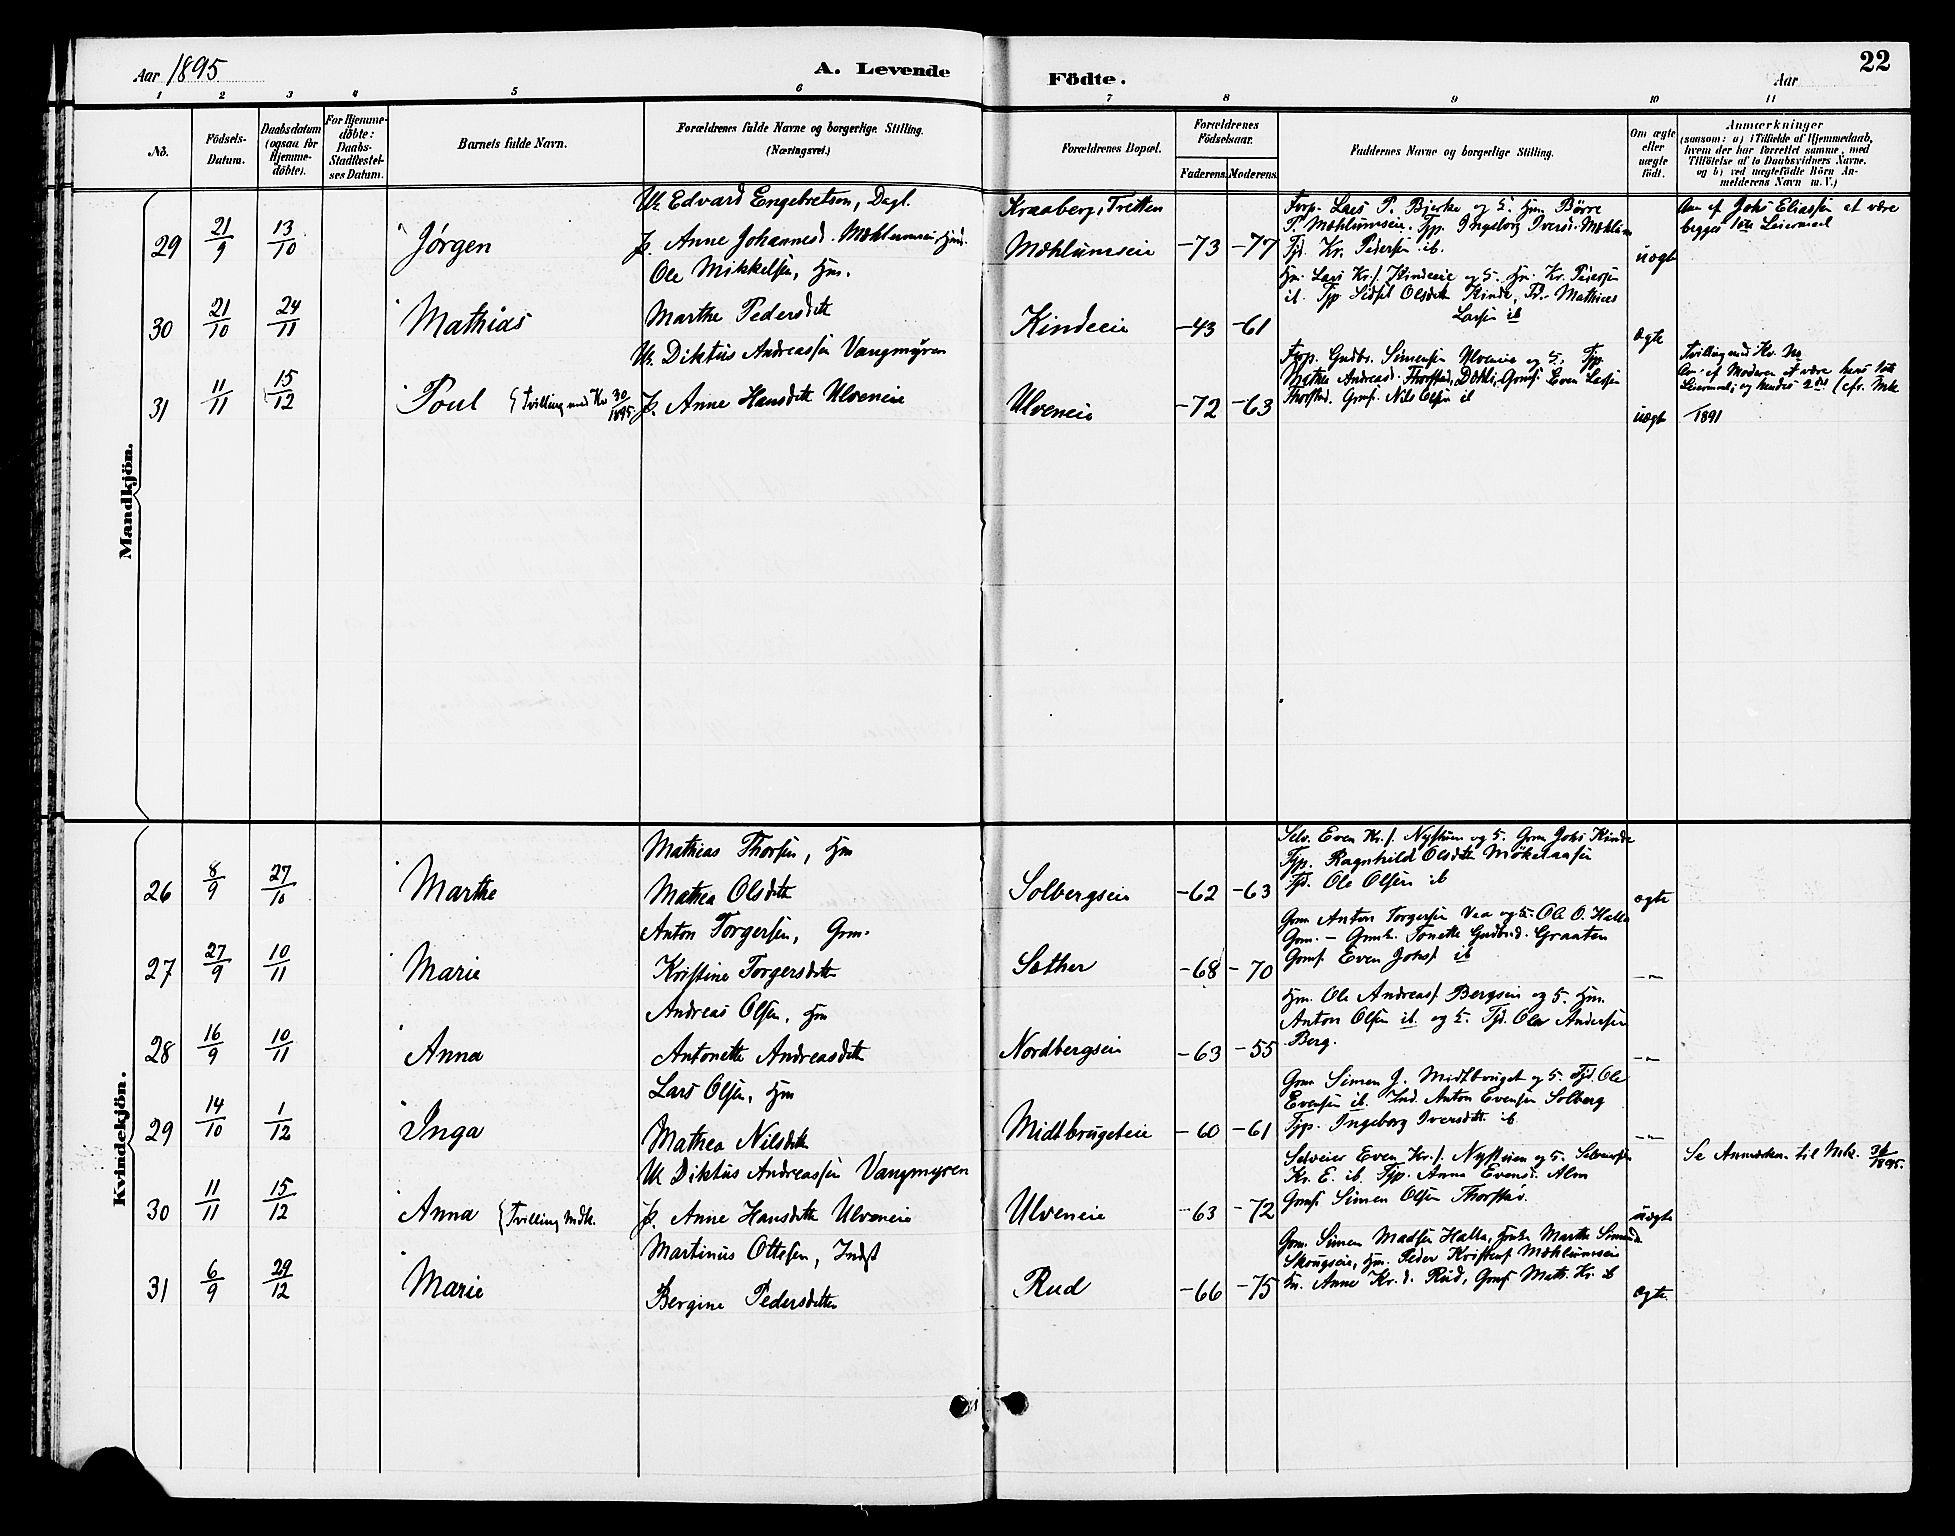 Aar 1895
A. Levende
Födte.
Aar
22
1 2 3 4 5 6 7 8 9 10 11
No.
Födsels-Datum.
Daabsdatum (ogsaa for Hjemme-döbte).
For Hjemme-döbte: Daabs-Stadfæstel-ses Datum.
Barnets fulde Navn.
Forældrenes fulde Navne og borgerlige Stilling. (Næringsvei.)
Forældrenes Bopæl.
Forældrenes Födselsaar.
Faderens. Moderens.
Faddernes Navne og borgerlige Stilling.
Om ægte eller uægte födt.
Anmærkninger
(saasom: a) i Tilfælde af Hjemmedaab,
hvem der har forrettet samme, med
Tilföielse af to Daabsvidners Navne.
og b) ved uægtefödte Börn An-
melderens Navn m. V.)
Mandkjön.
29 21/9 13/10 Jørgen
Uk Edvard Engebretsen, Dagl.
P. Anne Johannesd. Mæhlumseie
Kraaberg, Tretten
Mæhlumseie -73 -77
Forp. Lars P. Bjerke og H. Hm. Børre
P. Mæhlumseie. Pp. Ingeborg Iversd. Mæhlum
Tjd. Kr. Pedersen ib.
uægte
Anm. af Johs Eliassen at være
begges 1ste Leiermaal
30 21/10 24/11 Mathias
Ole Mikkelsen, Hm.
Marthe Pedersdtt
Kindeeie -43 -61
Hm. Lars Kr.s. Kindeeie og H. Hm. Kr. Pedersen
ib. Pp. Sidsel Olsdatter Kinde, Mathias
Larsen ib
ægte
31 11/11 15/12 Poul {Tvilling med Kv 30/1895
Uk. Diktus Andreassen Vangmyren
P. Anne Hansdtt Ulveneie
Ulveneie -72 -63
Forp. Gudbr. Simensen Ulveneie og H. Pp.
Mathea Andreasd. Thorstad, Gmf. Even Larsen
Thorstad. Gmf. Nils Olsen ib
uægte
Tvilling med Kv. No
An. af Moderen at være hans 1ste
Leiermaal og hendes 2det (cfr. Mk
1891
Kvindekjön.
26 8/9 27/10 Marthe
Mathias Thorsen, Hm
Mathea Olsdtt
Solbergseie -62 -63
Selv. Even Kr.s. Nystuen og H. Gm Johs Kinde
Pp. Ragnhild Olsdtt
Tjd. Ole Olsen ib
ægte
27 27/9 10/11 Marie
Anton Torgersen, Gm.
Kristine Torgersdtt
Sæther -68 -70
Gm Anton Torgersen og H. Ole O. Halla
Gm. - Gmk. Tonette Gudbrd. Graaten
Gmf. Even Johs.s ib
-"-
28 16/9 10/11 Anna
Andreas Olsen, Hm
Antonette Andreasdtt
Nordbergseie -63 -55
Hm. Ole Andreass. Bergseie og H. Hm.
Anton Olsen ib. og H. Tjd. Olav Andersen
Berg.
-"-
29 14/10 1/12 Inga
Lars Olsen, Hm
Mathea Nilsdtt
Midtbrugeteie -60 -61
Gm Simen J. Midtbruget og H. Tjd. Ole
Evensen ib. Ind. Anton Evensen Solberg
Pp. Ingeborg Iversdtt ib
-"-
30 11/11 15/12 Anna {Tvilling Mdk.
Uk Diktus Andreassen Vangmyren
P. Anne Hansdtt Ulveneie
Ulveneie -63 -72
Selveier Even Kr.s. Nystuen og H. Selveier
Kr. E. ib. Pp. Anna Evensd. Alm
Gmf. Simen Olsen Thorstad.
uægte
Se Anmærkn. til Mk. 31/1895.
31 6/9 29/12 Marie
Martinus Ottesen, Indst
Bergine Pedersdatter
Rud -66 -75
Gm. Simen Madsen Halla, Marthe Simensd.
Skougseie, Hm. Peder Kristens. Mæhlumseie
Anne Kr.d. Rud, Gmf Math. Kr. ib
ægte.